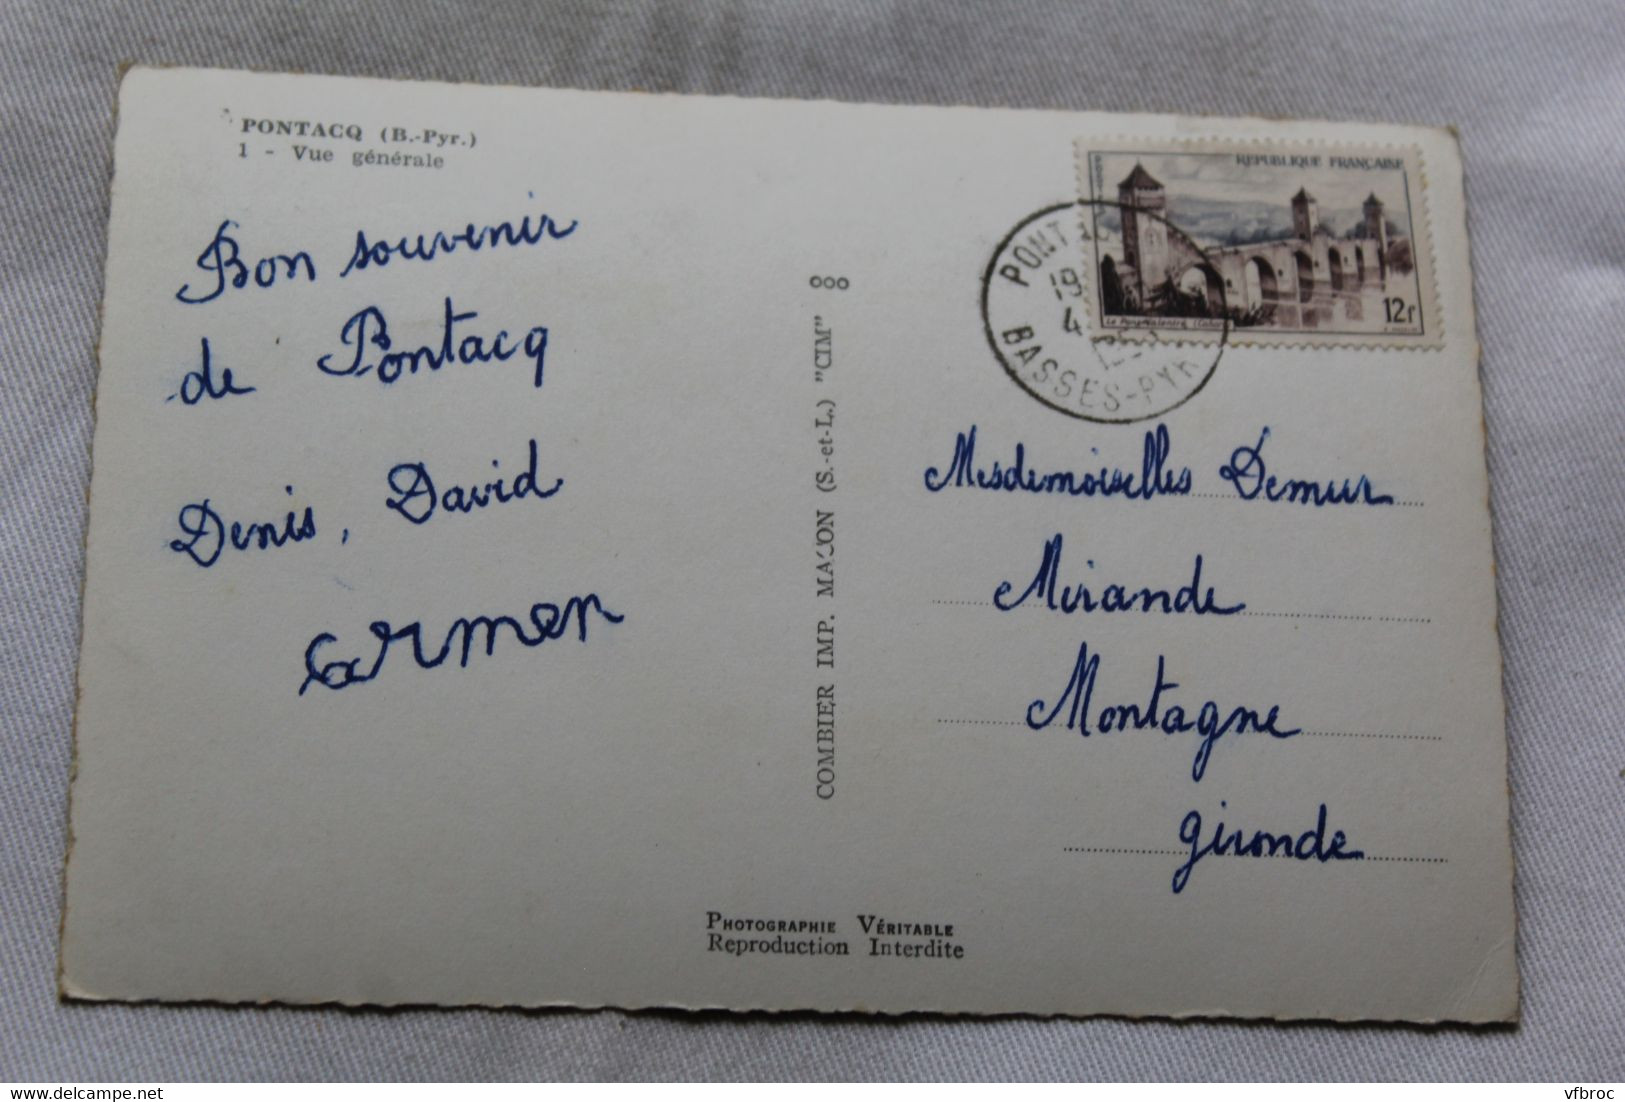 PONTACQ (B.-Pyr.)
1 - Vue générale
Bon souvenir
de Pontacq
Denis, David
Carmen
COMBIER IMP. MACON (S.-et-L.) "CIM"
REPUBLIQUE FRANÇAISE
POSTES
12f
BASSES-PYR
Mesdemoiselles Demur
Mirande
Montagne
Gironde
PHOTOGRAPHIE VÉRITABLE
Reproduction Interdite
www.delcampe.net
vfbroc